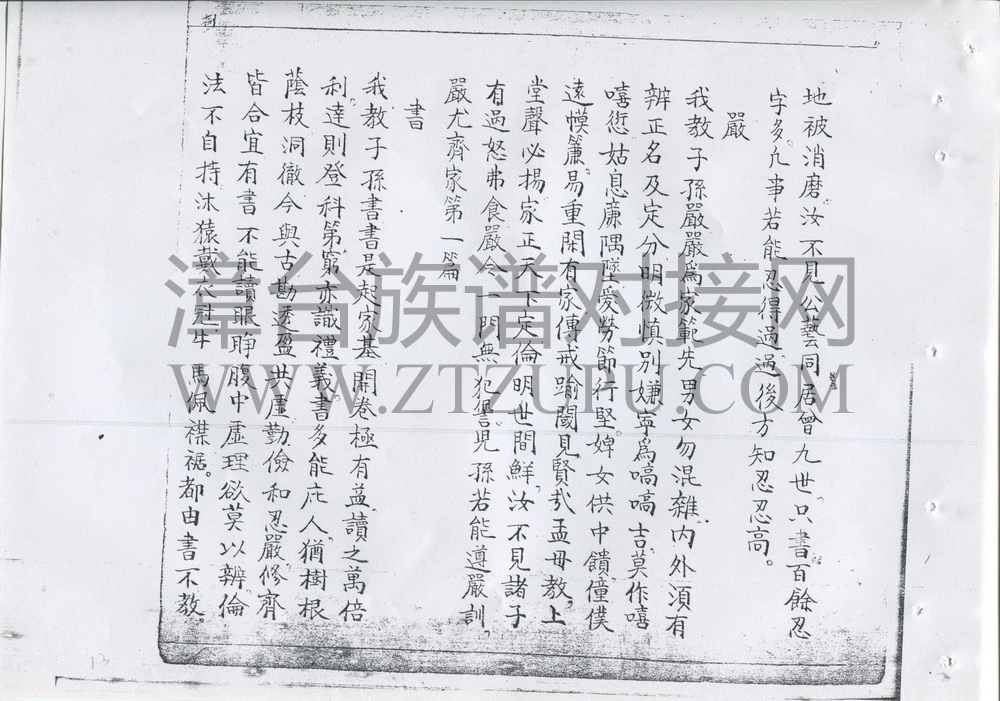 地被消磨汝不見公藝同居曾九世。只書百餘忍
字多。凡事若能忍得過過後方知忍忍高。
嚴
我教子孫嚴嚴爲家範先男女勿混雜內外須有
辨正名及定分明微慎別嫌寧爲嗃嗃吉莫作嘻
嘻愆姑息廉隅墜愛勞節行堅婢女供中饋僮僕
遠幙簾易重閑有家傳戒踰閾見賢哉孟母教上
堂聲必揚家正天下定倫明世間鮮汝不見諸子
有過怒弗食嚴令一門無犯諐兒孫若能遵嚴訓
嚴尤齊家第一篇
書
我教子孫書書是起家基開卷極有益讀之萬倍
利。達則登科第窮亦識禮義書多能庇人猶樹根
蔭枝洞徹今與古勘透盈共虛勤儉和忍嚴修齊
皆合宜有書不能讀眼睜腹中虛理欲莫以辨倫
法不自持沐猿戴衣冠牛馬佩襟裾。都由書不教。
漳台族谱对接网
WWW.ZTZUPU.COM
13